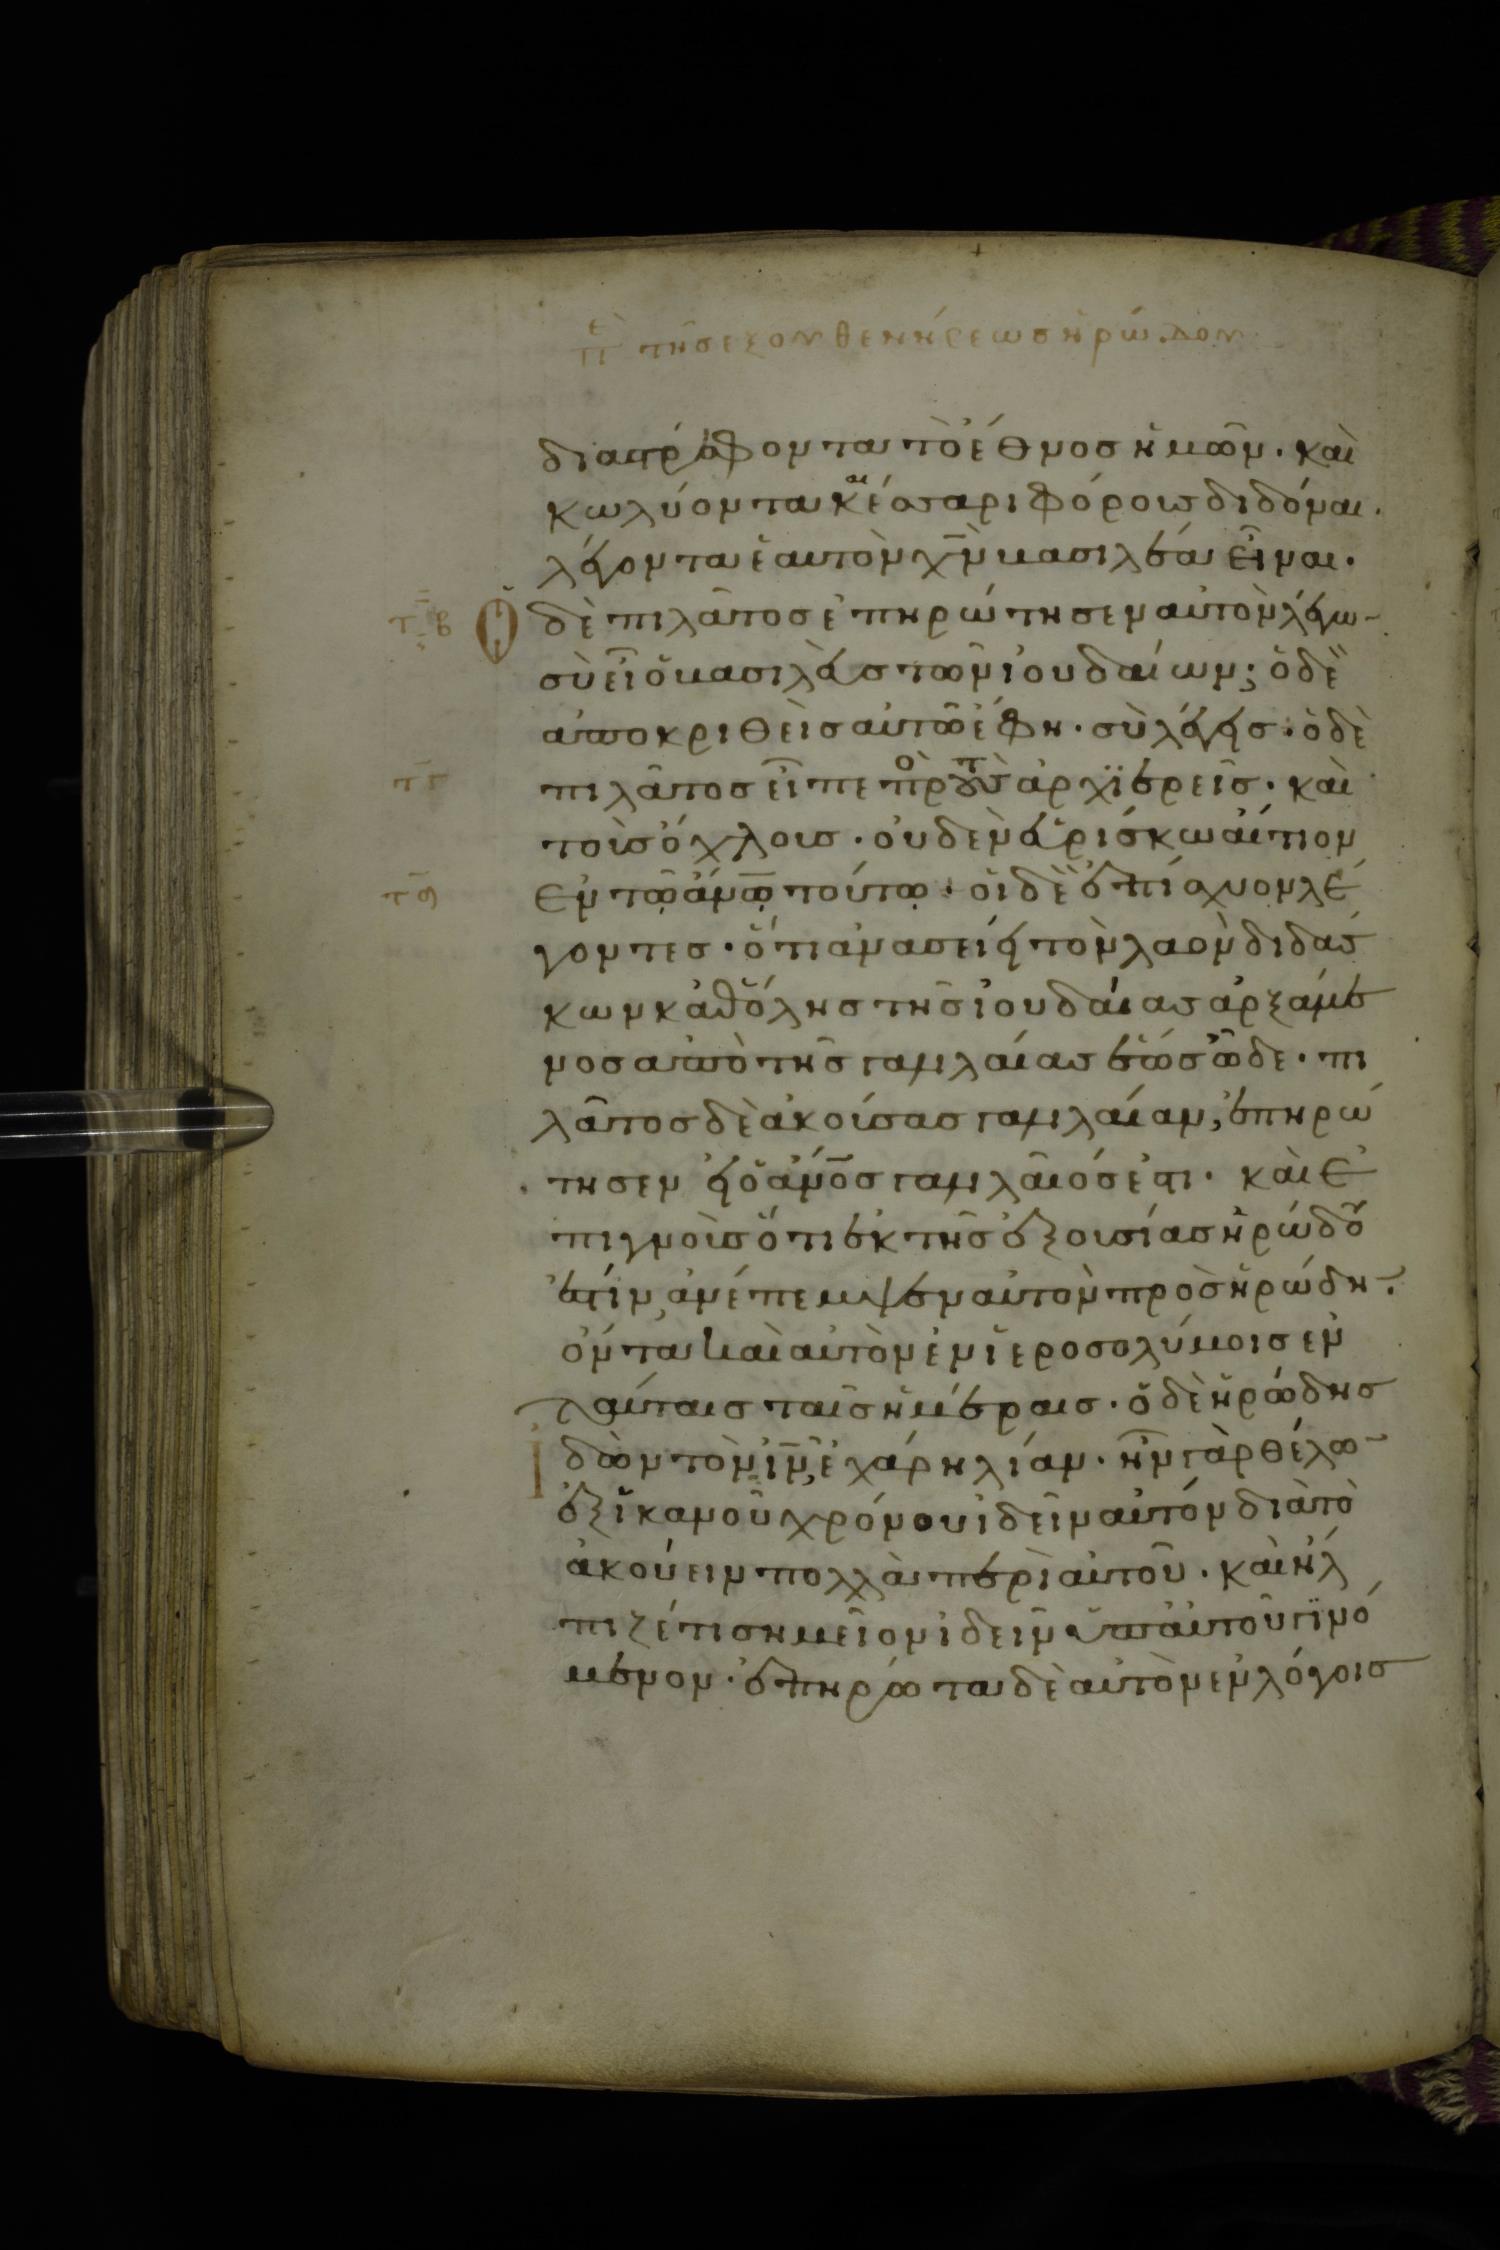 πε τῆς ἐξουθενήσεως ἡρώδου
διαστρέφοντα τὸ ἔθνος ἡμῶν · καὶ
κωλύοντα καισαρι φόρους διδόναι ·
λέγοντα ἑαυτὸν χν βασιλέα εἶναι ·
τβ Ὁ δὲ πιλάτος ἐπηρώτησεν αὐτὸν λέγω
σὺ εἶ ὁ βασιλεὺς τῶν ἰουδαίων ; ὁ δὲ
ἀποκριθεὶς αὐτῶ ἔφη · σὺ λέγεις · ὁ δὲ
τγ πιλάτος εἶπε πρὸς τοὺς ἀρχϊερεῖς · καὶ
τοὺς ὄχλους · οὐδὲν εὑρίσκω αἴτιον
τδ ἐν τῷ ἀνῳ τούτῳ · οἱ δὲ ἐπίσχυον λέ
γοντες · ὅτι ἀνασείει τὸν λαὸν διδάσ
κων καθ ὅλης τῆς ἰουδαίας ἀρξάμε
νος ἀπὸ τῆς γαλιλαίας ἕως ὧδε · πι
λάτος δὲ ἀκούσας γαλιλαίαν, ἐπηρώ
τησεν εἰ ὁ ἀνος γαλιλαῖός ἐστι · καὶ ἐ
πιγνοὺς ὅτι ἐκ τῆς ἐξουσίας ἡρώδου
ἐστίν, ἀνέπεμψεν αὐτὸν πρὸς ἡρώδη ·
ὄντα καὶ αὐτὸν ἐν ἱεροσολύμοις ἐν
ταύταις ταῖς ἡμέραις · ὁ δὲ ἡρώδης
ἰδὼν τὸν ιν, ἐχάρη λίαν · ἦν γὰρ θέλω
ἐξ ἱκανοῦ χρόνου ἰδεῖν αὐτόν διὰ τὸ
ἀκούειν πολλὰ περὶ αὐτοῦ · καὶ ἤλ
πιζέ τι σημεῖον ἰδεῖν ὑπ αὐτοῦ γϊνό
μενον · ἐπηρώτα δὲ αὐτὸν ἐν λόγοις